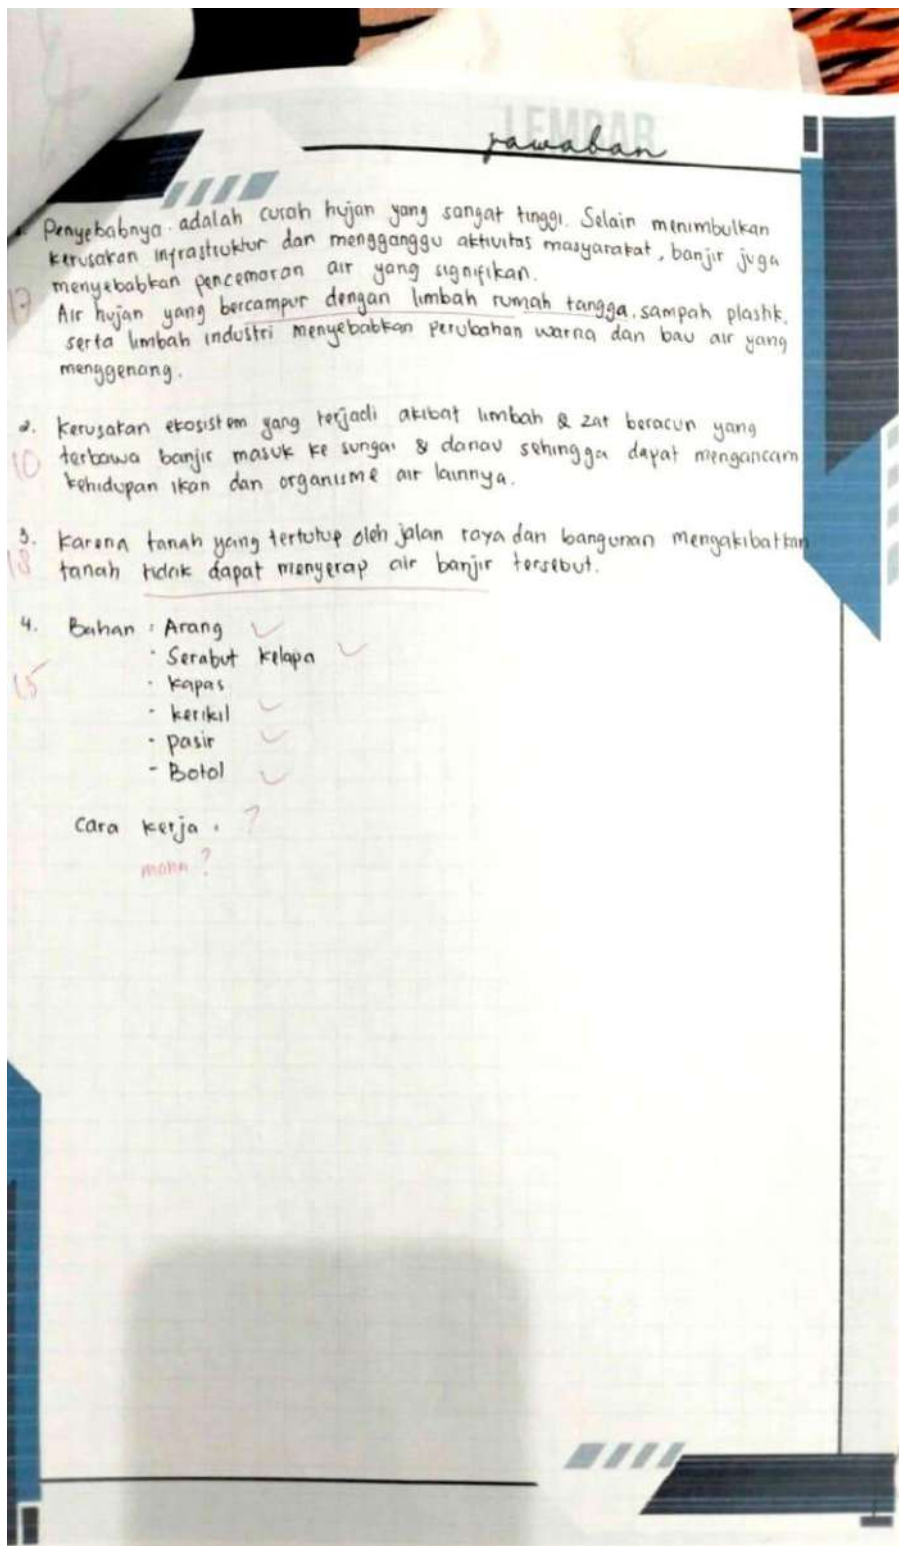 LEMBAR
jawaban
Penyebabnya adalah curah hujan yang sangat tinggi. Selain menimbulkan
kerusakan infrastruktur dan mengganggu aktivitas masyarakat, banjir juga
menyebabkan pencemaran air yang signifikan.
Air hujan yang bercampur dengan limbah rumah tangga, sampah plastik,
serta limbah industri menyebabkan perubahan warna dan bau air yang
menggenang.
2. Kerusakan ekosistem yang terjadi akibat limbah & zat beracun yang
10 terbawa banjir masuk ke sungai & danau sehingga dapat mengancam
kehidupan ikan dan organisme air lainnya.
3. Karena tanah yang tertutup oleh jalan raya dan bangunan mengakibatkan
18 tanah tidak dapat menyerap air banjir tersebut.
4. Bahan : Arang
· Serabut kelapa
15 · kapas
- kerikil
- pasir
- Botol
Cara kerja : ?
mana ?